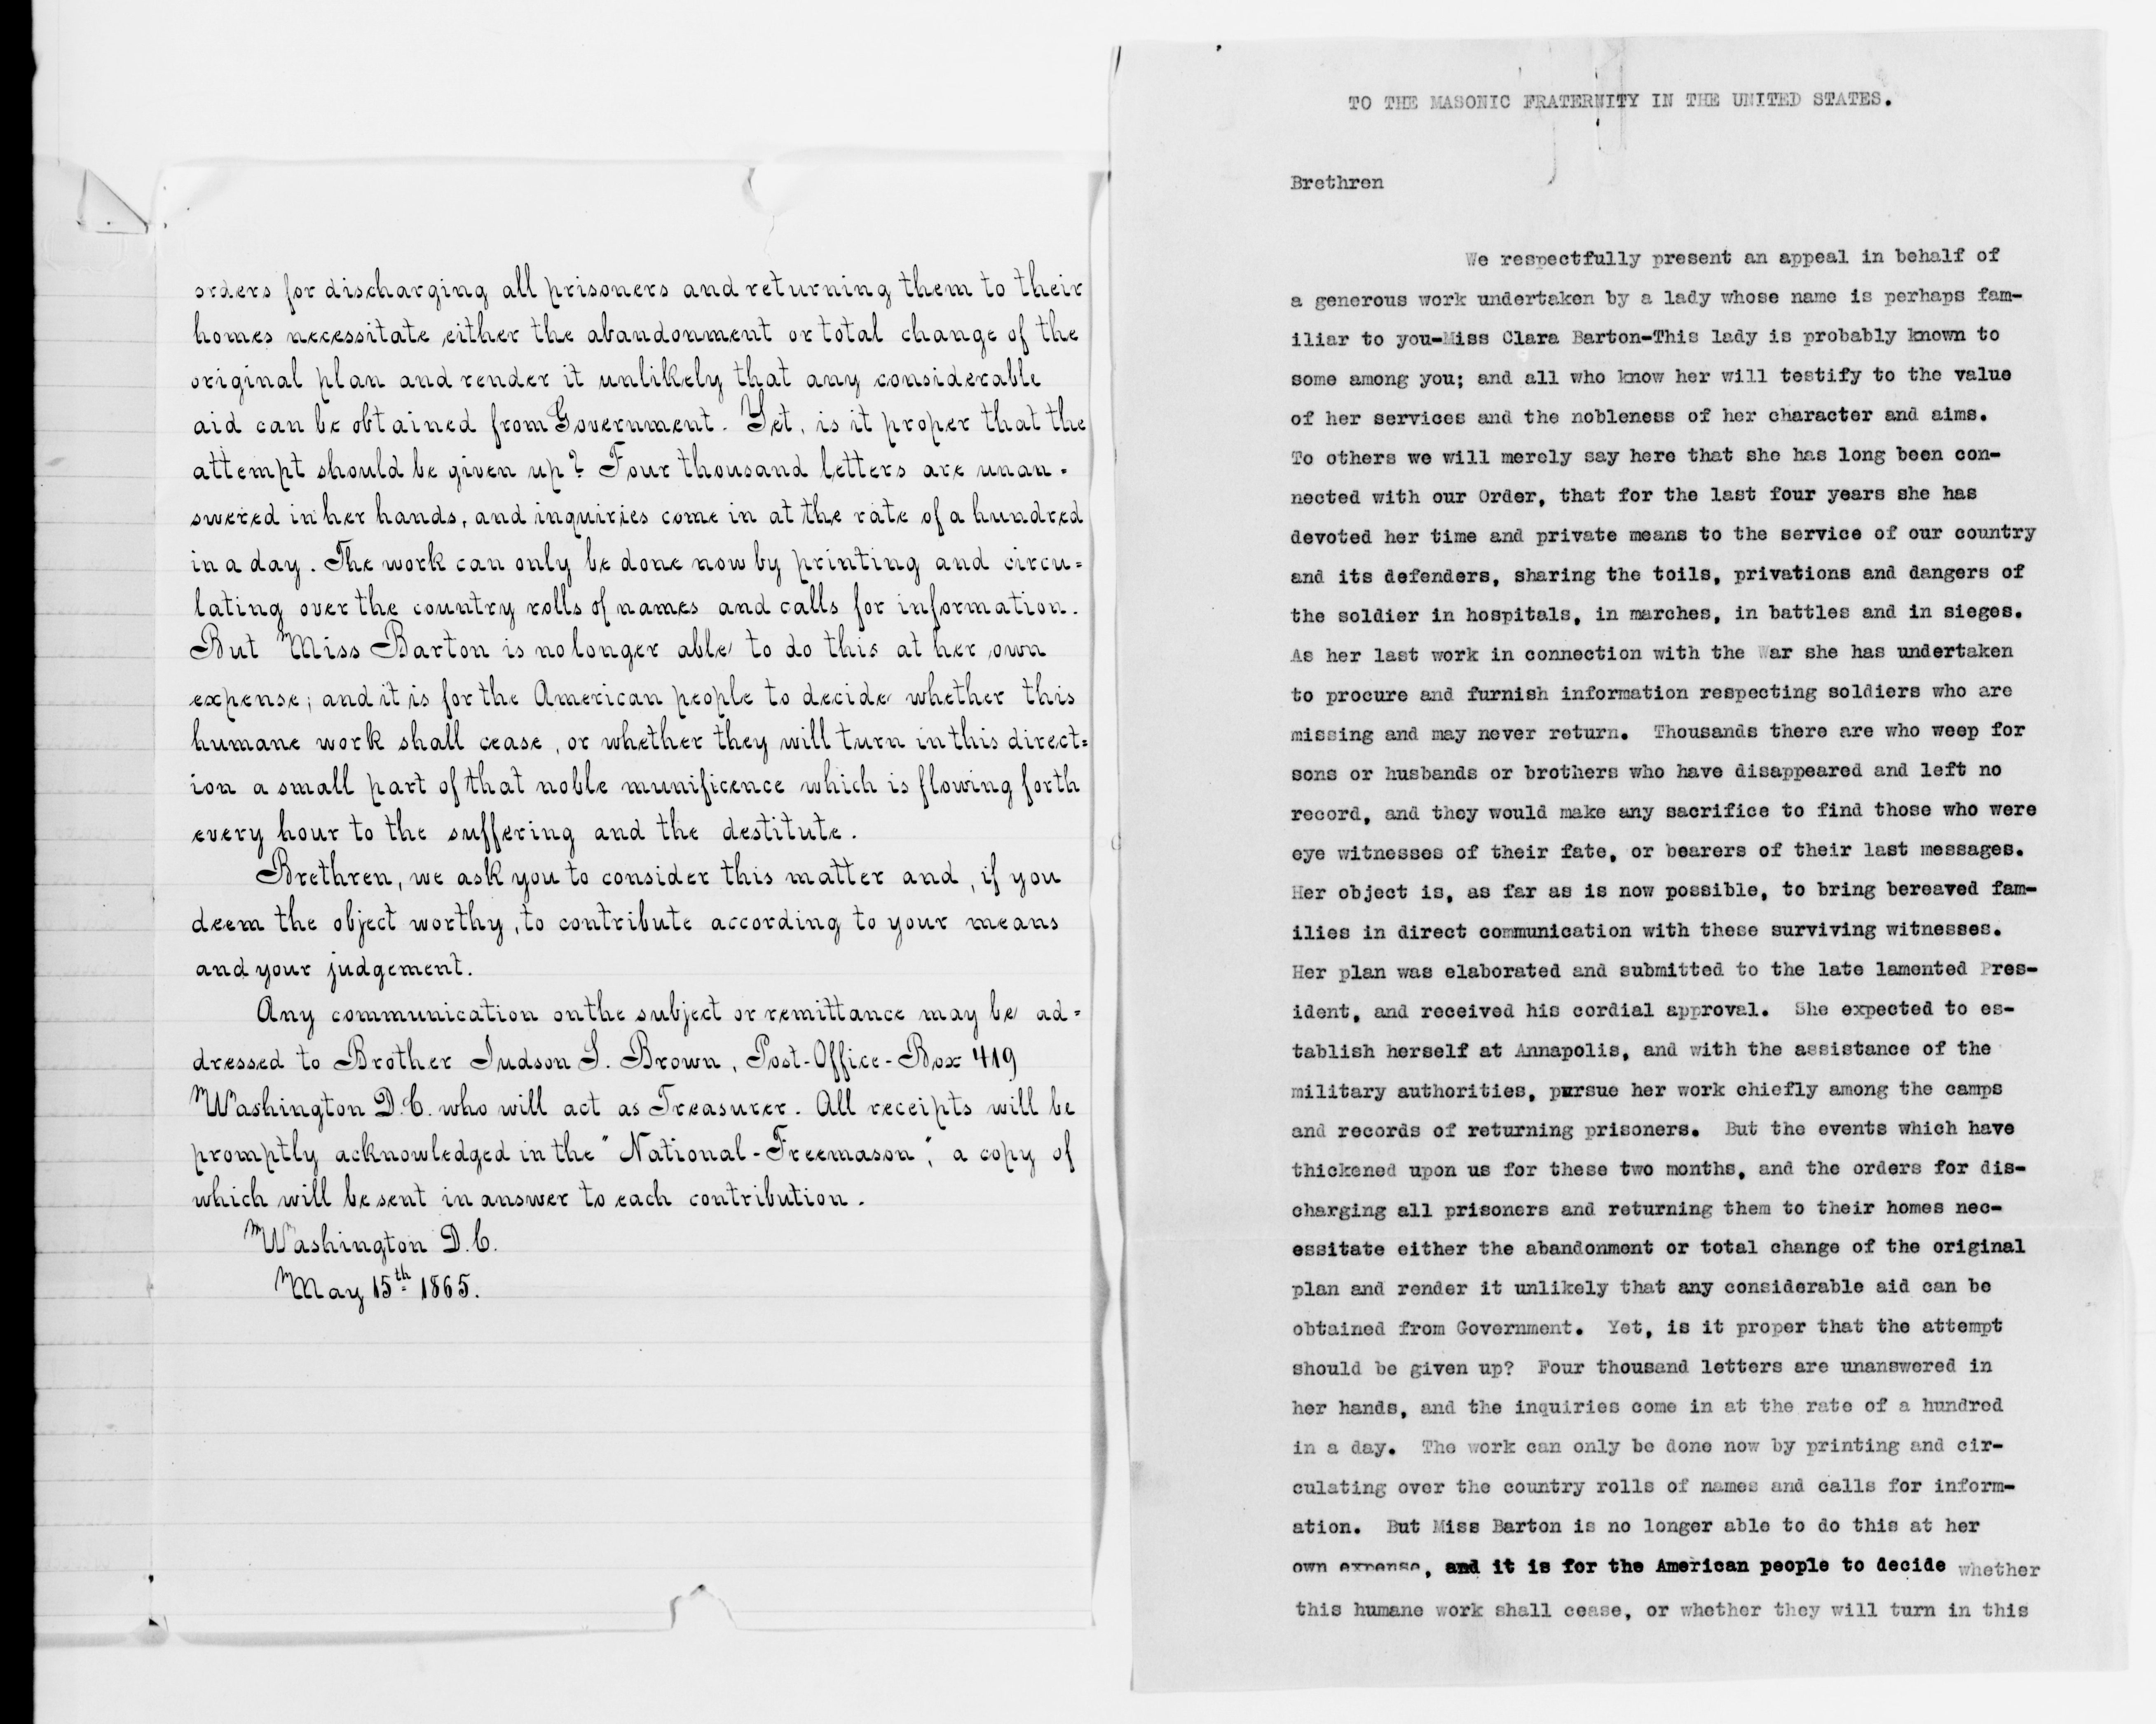 orders for discharging all prisoners and returning them to their
homes necessitate either the abandonment or total change of the
original plan and render it unlikely that any considerable
aid can be obtained from Government. Yet, is it proper that the
attempt should be given up? Four thousand letters are unan=
swered in her hands, and inquiries come in at the rate of a hundred
in a day. The work can only be done now by printing and circu=
lating over the country rolls of names and calls for information.
But Miss Barton is no longer able to do this at her own
expense; and it is for the American people to decide whether this
humane work shall cease, or whether they will turn in this direct=
ion a small part of that noble munificence which is flowing forth
every hour to the suffering and the destitute.
Brethren, we ask you to consider this matter and, if you
deem the object worthy, to contribute according to your means
and your judgement.
Any communication on the subject or remittance may be ad=
dressed to Brother Judson S. Brown, Post-Office-Box 419
Washington D.C. who will act as Treasurer. All receipts will be
promptly acknowledged in the "National-Freemason", a copy of
which will be sent in answer to each contribution.
Washington D.C.
May 15th 1865.
TO THE MASONIC FRATERNITY IN THE UNITED STATES.
Brethren
We respectfully present an appeal in behalf of
a generous work undertaken by a lady whose name is perhaps fam-
iliar to you-Miss Clara Barton-This lady is probably known to
some among you; and all who know her will testify to the value
of her services and the nobleness of her character and aims.
To others we will merely say here that she has long been con-
nected with our Order, that for the last four years she has
devoted her time and private means to the service of our country
and its defenders, sharing the toils, privations and dangers of
the soldier in hospitals, in marches, in battles and in sieges.
As her last work in connection with the War she has undertaken
to procure and furnish information respecting soldiers who are
missing and may never return. Thousands there are who weep for
sons or husbands or brothers who have disappeared and left no
record, and they would make any sacrifice to find those who were
eye witnesses of their fate, or bearers of their last messages.
Her object is, as far as is now possible, to bring bereaved fam-
ilies in direct communication with these surviving witnesses.
Her plan was elaborated and submitted to the late lamented Pres-
ident, and received his cordial approval. She expected to es-
tablish herself at Annapolis, and with the assistance of the
military authorities, pursue her work chiefly among the camps
and records of returning prisoners. But the events which have
thickened upon us for these two months, and the orders for dis-
charging all prisoners and returning them to their homes nec-
essitate either the abandonment or total change of the original
plan and render it unlikely that any considerable aid can be
obtained from Government. Yet, is it proper that the attempt
should be given up? Four thousand letters are unanswered in
her hands, and the inquiries come in at the rate of a hundred
in a day. The work can only be done now by printing and cir-
culating over the country rolls of names and calls for inform-
ation. But Miss Barton is no longer able to do this at her
own expense, and it is for the American people to decide whether
this humane work shall cease, or whether they will turn in this